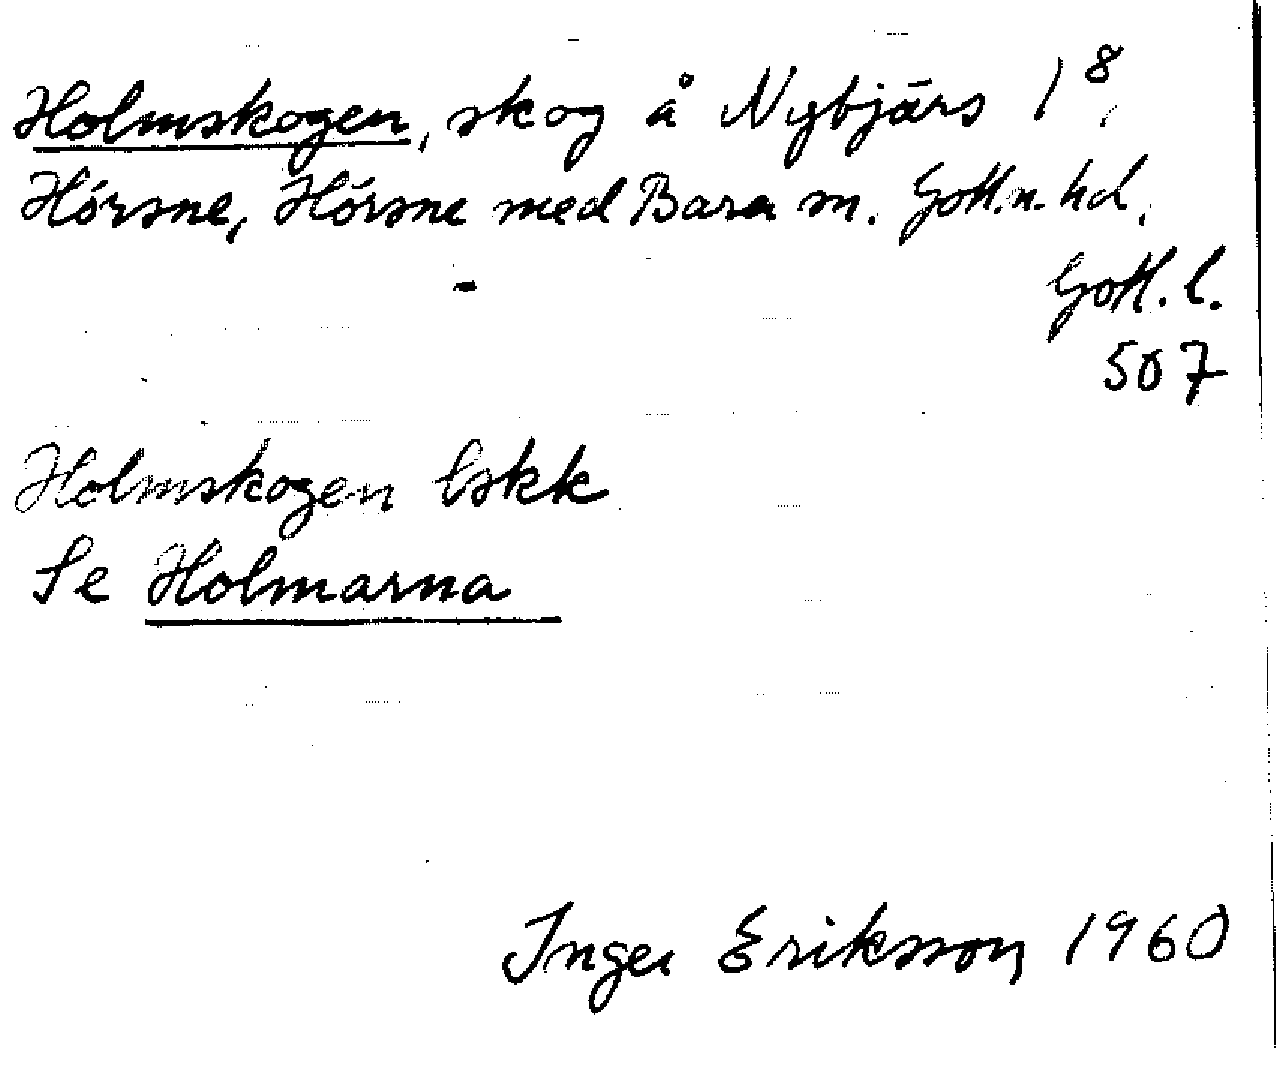 Holmskogen, skog å Nybjärs 1⁸,
Hörsne, Hörsne med Bara sn. Gotl.n.hd.
Gotl. l.
507
Holmskogen lskk
Se Holmarna
Inger Eriksson 1960